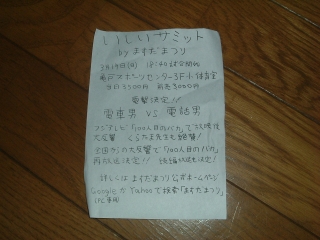 いしいサミット
by ますだまつり
3月19日(日) 18:40 試合開始
亀戸スポーツセンター3F小体育室
当日3500円 前売3000円
電撃決定!!
電車男 VS 電話男
フジテレビ「100人目のバカ」で放映後
大反響 くらたま先生も絶賛!
全国からの大反響で「100人目のバカ」
再放送決定!! 続編放映も決定!
詳しくは ますだまつり公式ホームページ
GoogleかYahooで検索「ますだまつり」
(PC専用)